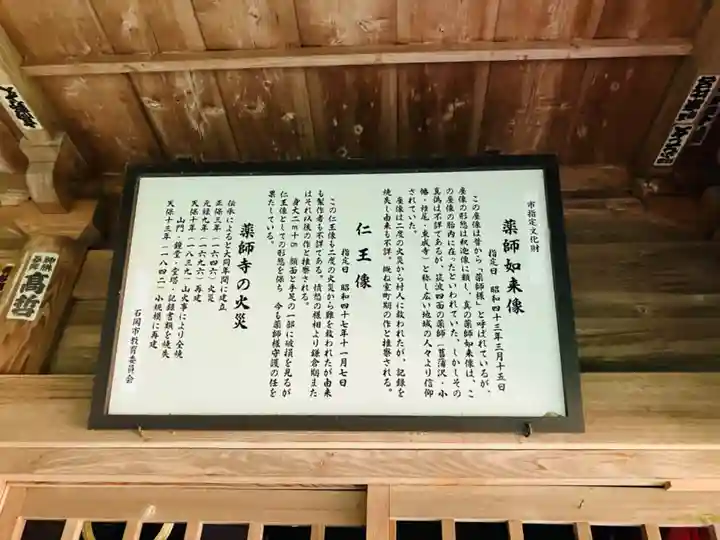 市指定文化財
薬師如来像
指定日 昭和四十三年三月十五日
この座像は昔から「薬師様」と呼ばれているが、
座像の形態は釈迦像に類し、真の薬師如来像は、こ
の座像の胎内に在ったといわれていた。しかしその
真偽は不詳であるが、筑波四面の薬師（菖蒲沢・小
幡・椎尾・東城寺）と称し広い地域の人々より信仰
されていた。
座像は二度の火災から村人に救われたが、記録を
焼失し由来も不詳、概ね室町期の作と推察される。
仁王像
指定日 昭和四十七年十一月七日
この仁王像も二度の火災から難を救われたが由来
も製作者も不詳である。憤怒の様相より鎌倉期また
はそれ以後の作と推察される。
身丈二m十cm 顔面と手足の一部に破損を見るが
仁王像としての形態を保ち 今も薬師様守護の任を
果たしている。
薬師寺の火災
伝承によると大同年間に建立
正保三年（一六四六）火災
元禄九年（一六九六）再建
天保十年（一八三九）山火事により全焼
山門・鐘堂・堂塔・記録書類を焼失
天保十三年（一八四二）小規模に再建
石岡市教育委員会
高哲